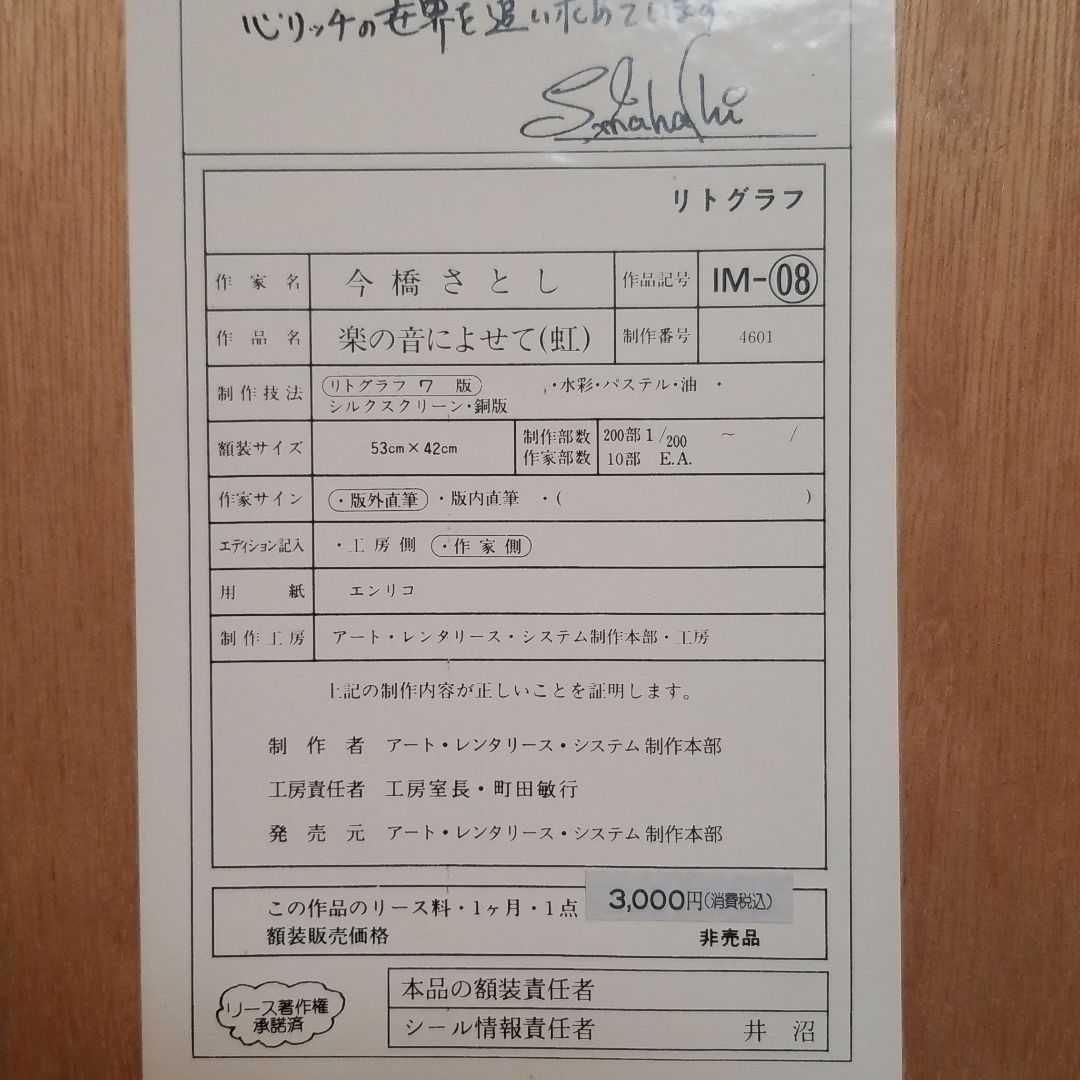 心リッチの世界を追い求めています
リトグラフ
作家名 今橋さとし 作品記号 IM-08
作品名 楽の音によせて(虹) 制作番号 4601
制作技法 リトグラフ 7 版 ・水彩・パステル・油 ・
シルクスクリーン・銅版
額装サイズ 53cm×42cm 制作部数 200部 1/200 ～ /
作家部数 10部 E.A.
作家サイン ・版外直筆 ・版内直筆 ・( )
エディション記入 ・工房側 ・作家側
用紙 エンリコ
制作工房 アート・レンタリース・システム制作本部・工房
上記の制作内容が正しいことを証明します。
制作者 アート・レンタリース・システム制作本部
工房責任者 工房室長・町田敏行
発売元 アート・レンタリース・システム制作本部
この作品のリース料・1ヶ月・1点 3,000円(消費税込)
額装販売価格 非売品
リース著作権
承諾済
本品の額装責任者
シール情報責任者 井沼